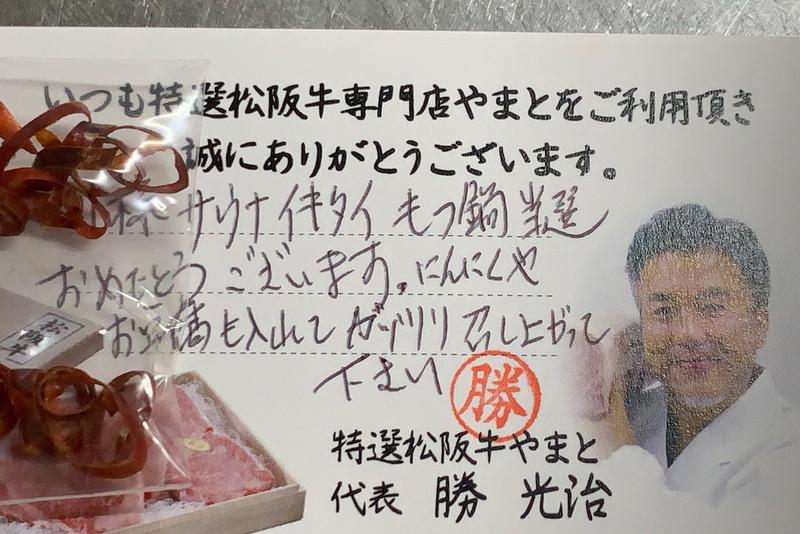 いつも特選松阪牛専門店やまとをご利用頂き
誠にありがとうございます。
様 サウナイキタイ もつ鍋当選
おめでとうございます。にんにくや
も入れて ガッツリ 召し上がって
下さい
勝
特選松阪牛やまと
代表 勝 光治
松阪牛